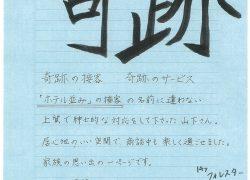 奇跡
奇跡の接客　奇跡のサービス
「ホテル並み」の接客の名前に違わない
上質で紳士的な対応をして下さった山下さん。
居心地のいい空間で商談中も楽しく過ごせました。
家族の思い出の一ページです。
フォレスター